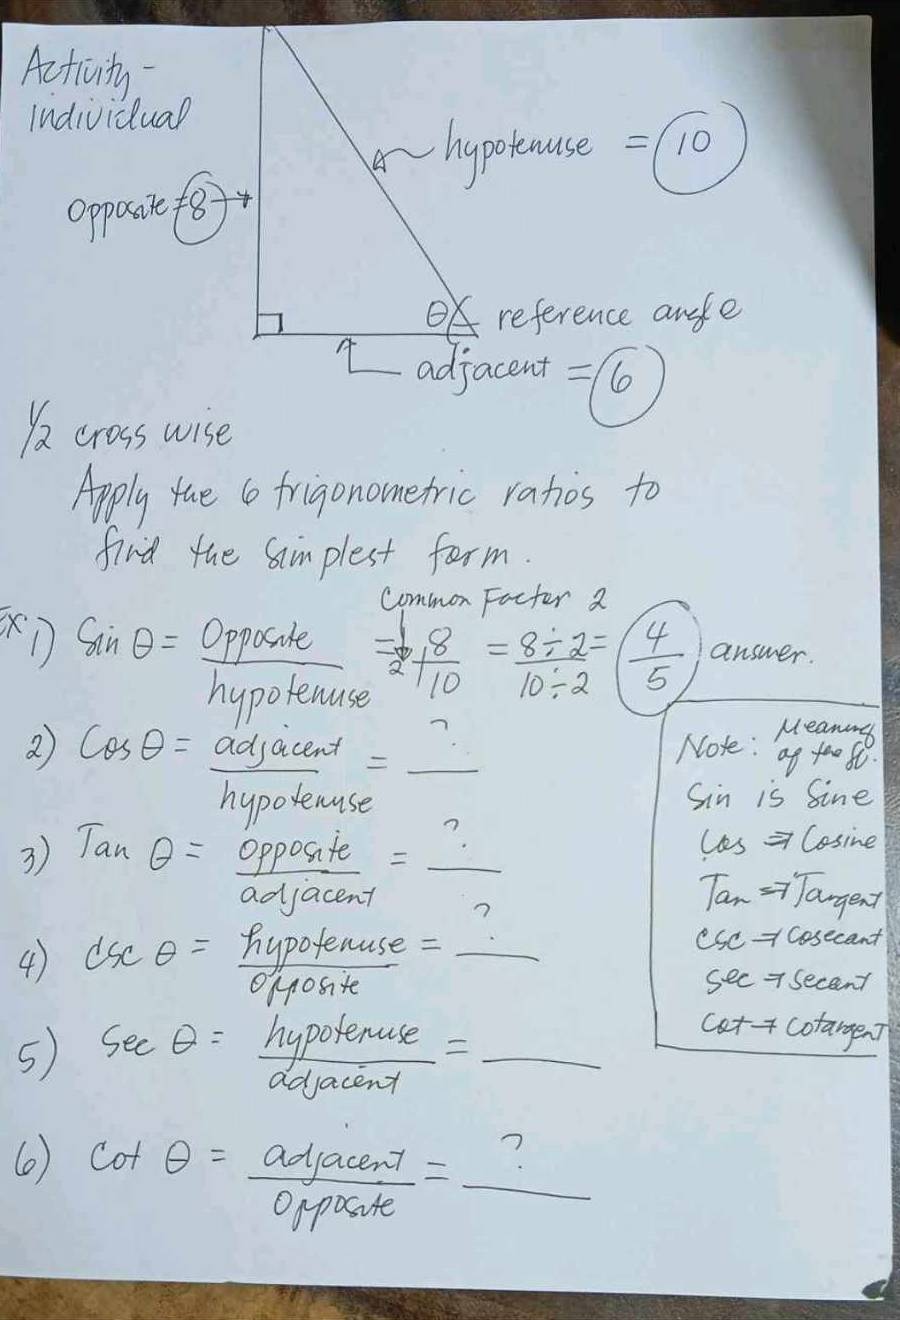 Activity -
individual
hypotenuse = 10
Opposite = 8
θ reference angle
adjacent = 6
1/2 cross wise
Apply the 6 trigonometric ratios to
find the simplest form.
Common Factor 2
Ex. 1) Sin θ = Opposite / hypotenuse = 2 8 / 10 = 8 ÷ 2 / 10 ÷ 2 = 4 / 5 answer.
2) Cos θ = adjacent / hypotenuse = ?
3) Tan θ = opposite / adjacent = ?
4) Csc θ = hypotenuse / opposite = ?
5) Sec θ = hypotenuse / adjacent =
6) Cot θ = adjacent / Opposite = ?
Note: Meaning
of the
Sin is Sine
Cos → Cosine
Tan → Tangent
Csc → Cosecant
Sec → Secant
Cot → Cotangent